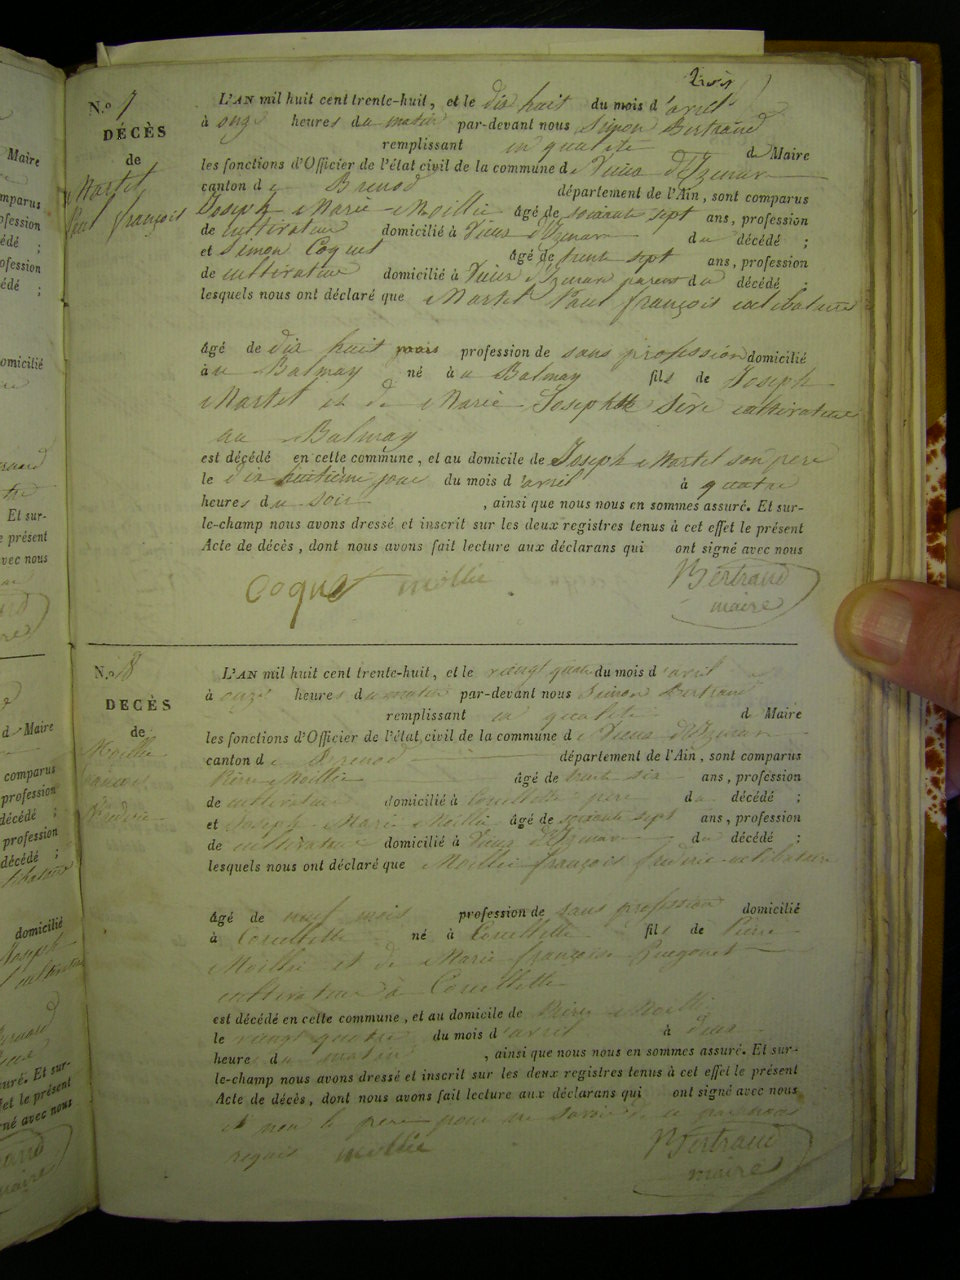 trois
N.o 7
DÉCÈS
de
Martel
Paul françois
L'AN mil huit cent trente-huit, et le dix huit du mois d'avril
à onze heures du matin par-devant nous Simon Bertrand
remplissant en qualité de Maire
les fonctions d'Officier de l'état civil de la commune de Vieux d'Izenave
canton de Brenod département de l'Ain, sont comparus
Joseph Marie Moillie âgé de soixante sept ans, profession
de cultivateur domicilié à Vieux d'Izenave du décédé ;
et Simon Coquet âgé de trente sept ans, profession
de cultivateur domicilié à Vieux d'Izenave parens du décédé .
lesquels nous ont déclaré que Martel Paul françois celibataire
âgé de dix huit mois profession de sans profession domicilié
au Balmay né au Balmay fils de Joseph
Martel et de Marie Josephte Sève cultivateur
au Balmay
est décédé en cette commune, et au domicile de Joseph Martel son père
le dix huitième jour du mois d'avril à quatre
heures du soir , ainsi que nous nous en sommes assuré. Et sur-
le-champ nous avons dressé et inscrit sur les deux registres tenus à cet effet le présent
Acte de décès, dont nous avons fait lecture aux déclarans qui ont signé avec nous
Coquet mollie Bertrand
maire
N.o 8
DÉCÈS
de
Moillie
françois
L'AN mil huit cent trente-huit, et le vingt quatre du mois d'avril
à onze heures du matin par-devant nous Simon Bertrand
remplissant en qualité de Maire
les fonctions d'Officier de l'état civil de la commune de Vieux d'Izenave
canton de Brenod département de l'Ain, sont comparus
Pierre Moillie âgé de trente six ans, profession
de cultivateur domicilié à Corcelette père du décédé ;
et Joseph Marie Moillie âgé de soixante sept ans, profession
de cultivateur domicilié à Vieux d'Izenave du décédé ;
lesquels nous ont déclaré que Moillie françois celibataire
âgé de neuf mois profession de sans profession domicilié
à Corcelette né à Corcelette fils de Pierre
Moillie et de Marie françoise
cultivateur à Corcelette
est décédé en cette commune, et au domicile de Pierre Moillie
le vingt quatre du mois d'avril à deux
heures du matin , ainsi que nous nous en sommes assuré. Et sur-
le-champ nous avons dressé et inscrit sur les deux registres tenus à cet effet le présent
Acte de décès, dont nous avons fait lecture aux déclarans qui ont signé avec nous
et non le père pour ne savoir de ce
requis mollie Bertrand
maire